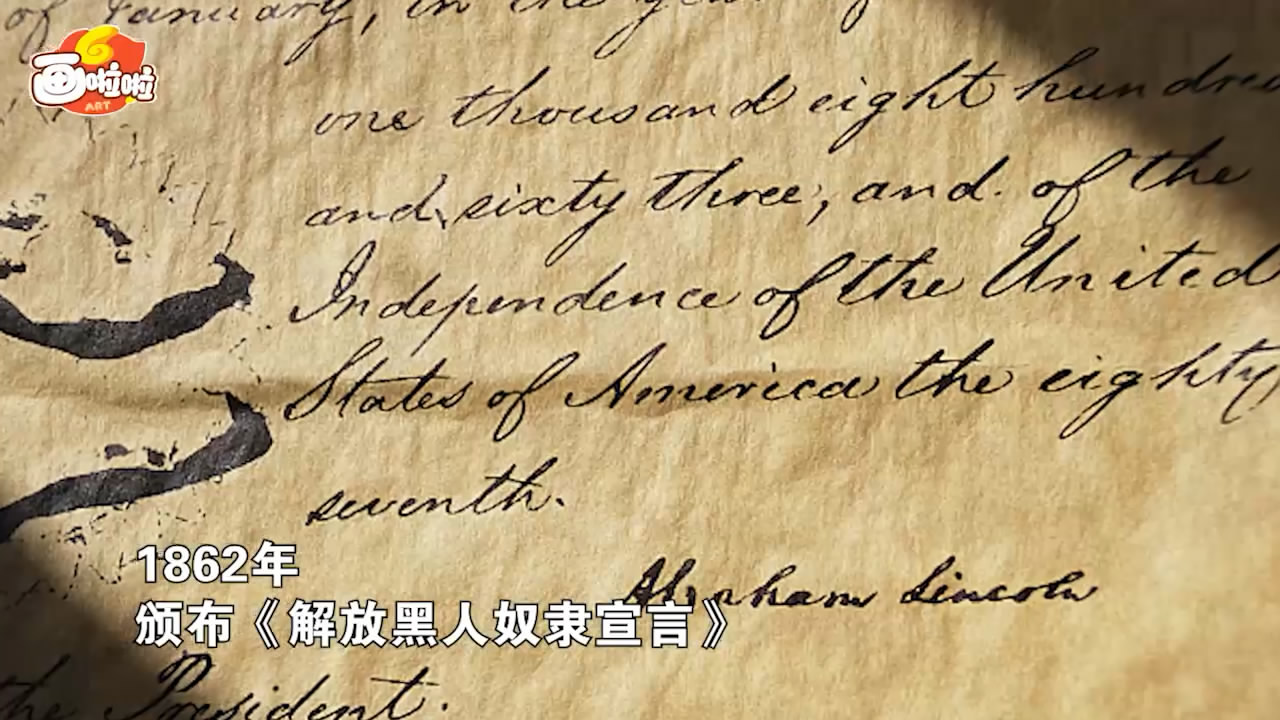 画啦啦
ART
of January, in the year of
one thousand eight hundred
and sixty three, and of the
Independence of the United
States of America the eighty
seventh.
Abraham Lincoln
the President.
1862年
颁布《解放黑人奴隶宣言》